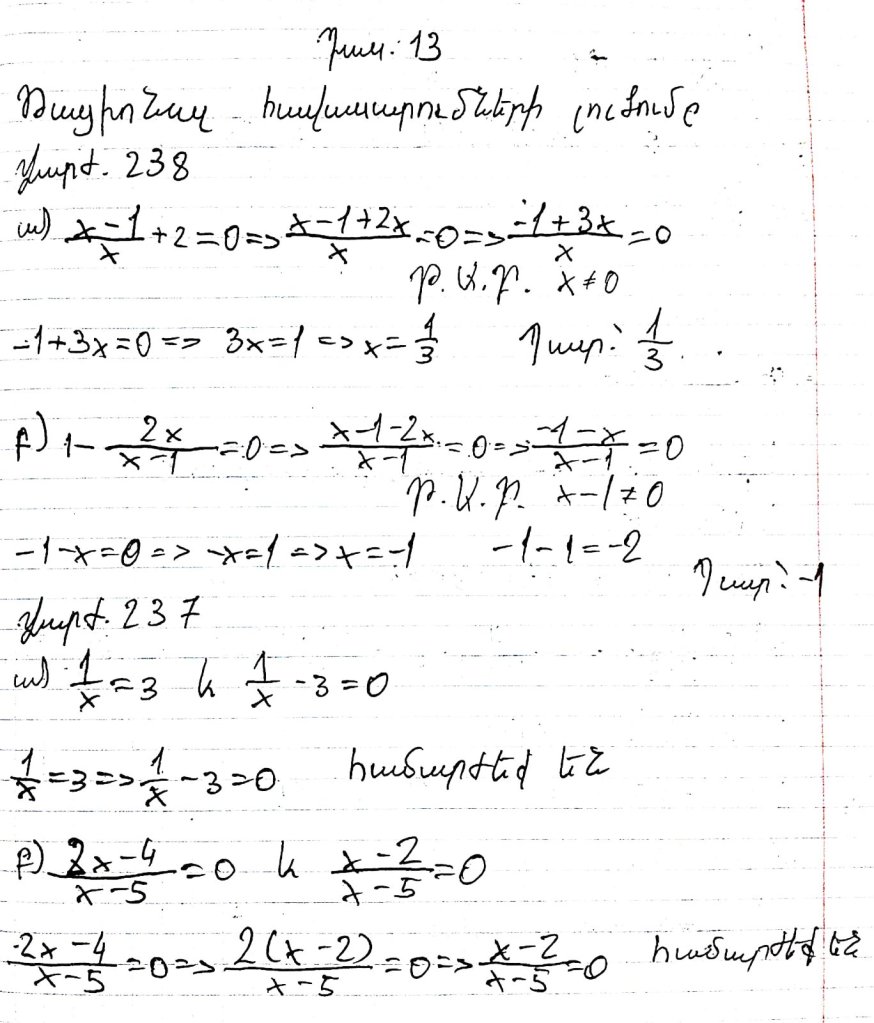 Դաս. 13
Ռացիոնալ հավասարումների լուծումը
Վարժ. 238
ա) (x-1)/x + 2 = 0 => (x-1+2x)/x = 0 => (-1+3x)/x = 0
Թ.Ա.Բ. x ≠ 0
-1+3x=0 => 3x=1 => x = 1/3 Պատ՝ 1/3.
բ) 1 - 2x/(x-1) = 0 => (x-1-2x)/(x-1) = 0 => (-1-x)/(x-1) = 0
Թ.Ա.Բ. x-1 ≠ 0
-1-x=0 => -x=1 => x=-1 -1-1=-2
Պատ՝ -1
Վարժ. 237
ա) 1/x = 3 և 1/x - 3 = 0
1/x = 3 => 1/x - 3 = 0 համարժեք են
բ) (2x-4)/(x-5) = 0 և (x-2)/(x-5) = 0
(2x-4)/(x-5) = 0 => 2(x-2)/(x-5) = 0 => (x-2)/(x-5) = 0 համարժեք են